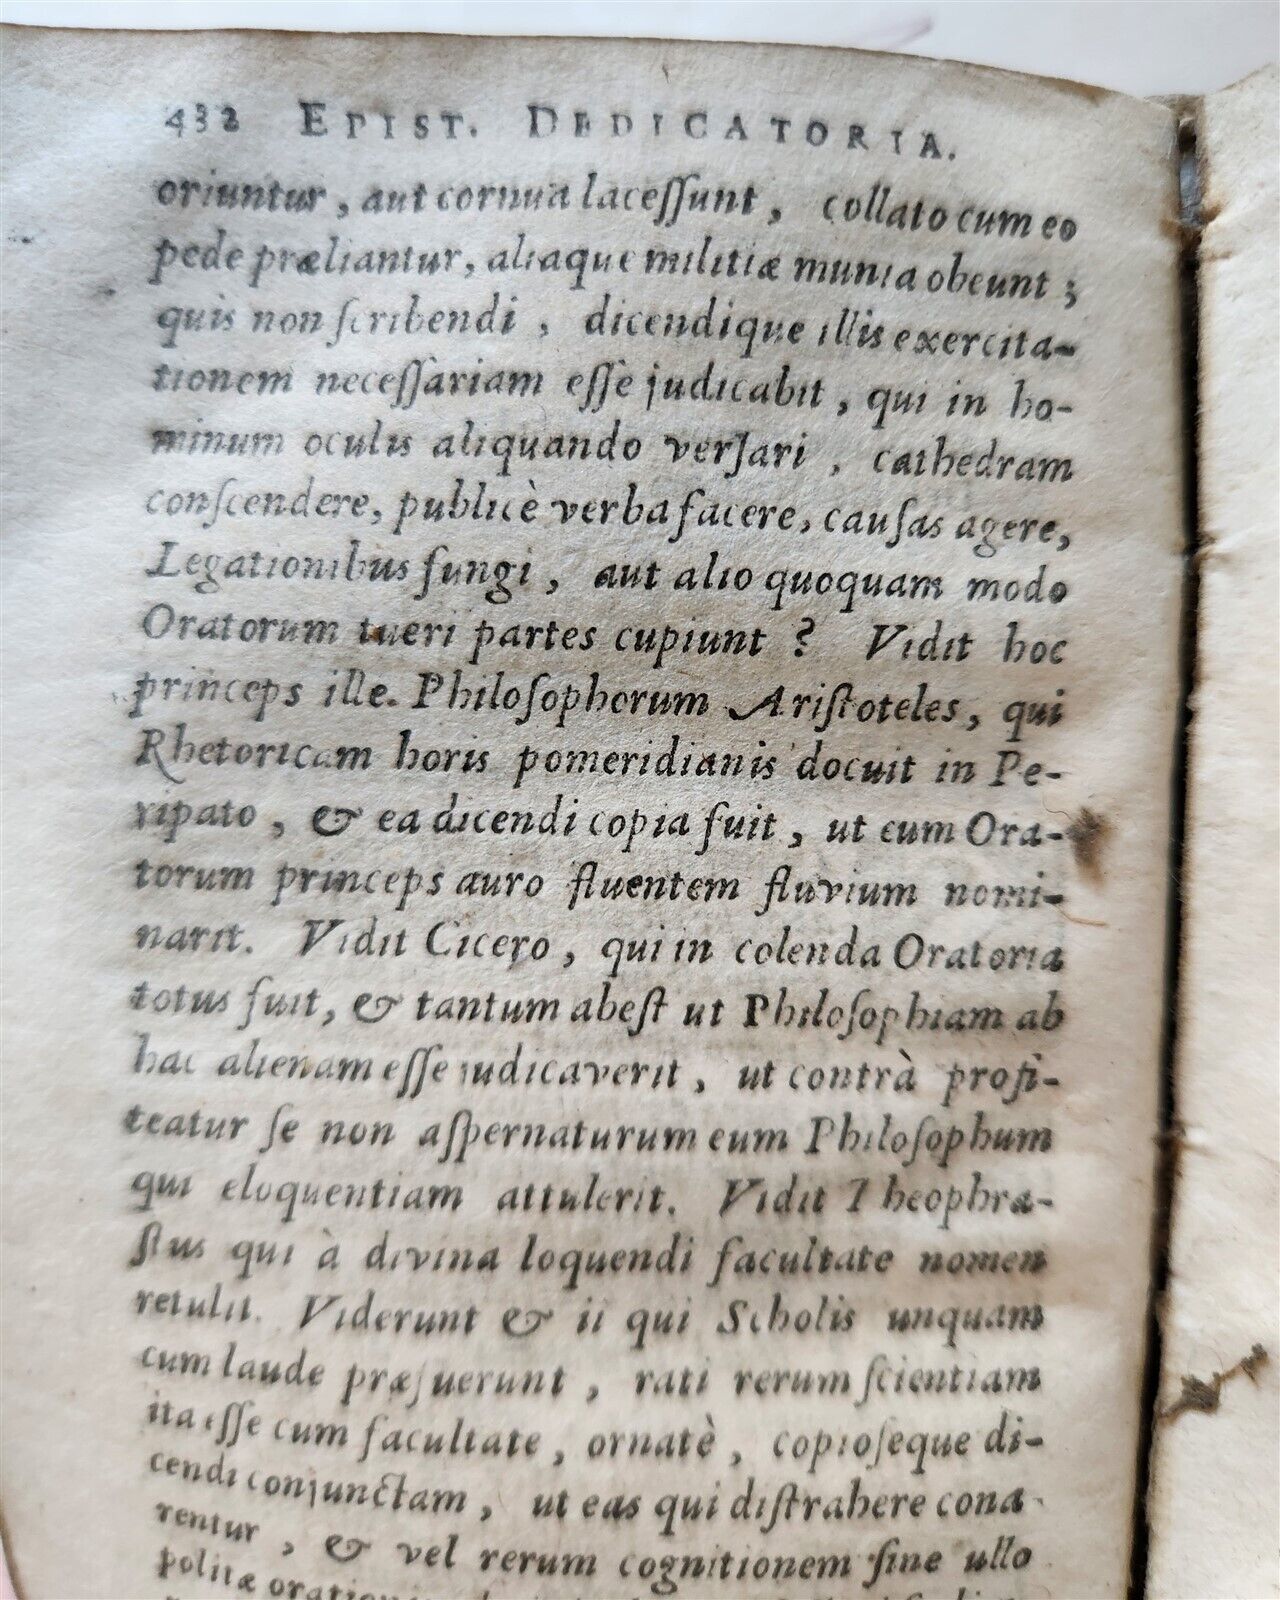 432 EPIST. DEDICATORIA.
oriuntur, aut cornua laceſſunt, collato cum eo
pede præliantur, aliaque militiæ munia obeunt;
quis non ſcribendi, dicendique illis exercita-
tionem neceſſariam eſſe judicabit, qui in ho-
minum oculis aliquando verſari, cathedram
conſcendere, publicè verba facere, cauſas agere,
Legationibus fungi, aut alio quoquam modo
Oratorum tueri partes cupiunt? Vidit hoc
princeps ille. Philoſophorum Ariſtoteles, qui
Rhetoricam horis pomeridianis docuit in Pe-
ripato, & ea dicendi copia fuit, ut eum Ora-
torum princeps auro fluentem fluvium nomi-
narit. Vidit Cicero, qui in colenda Oratoria
totus fuit, & tantum abeſt ut Philoſophiam ab
hac alienam eſſe judicaverit, ut contrà profi-
teatur ſe non aſpernaturum eum Philoſophum
qui eloquentiam attulerit. Vidit Theophra-
ſtus qui à divina loquendi facultate nomen
retulit. Viderunt & ii qui Scholis unquam
cum laude præfuerunt, rati rerum ſcientiam
ita eſſe cum facultate, ornatè, copioſeque di-
cendi conjunctam, ut eas qui diſtrahere cona-
rentur, & vel rerum cognitionem ſine ullo
politæ